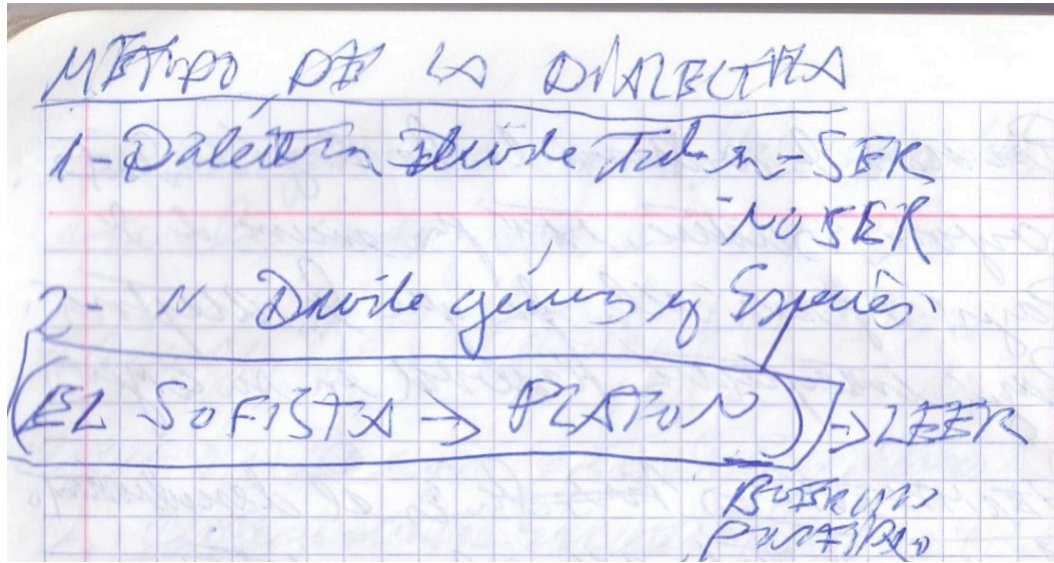 MÉTODO DE LA DIALECTICA
1- Dialéctica Divide Todo en - SER
- NO SER
2- " Divide géneros y Especies
(EL SOFISTA → PLATON) → LEER